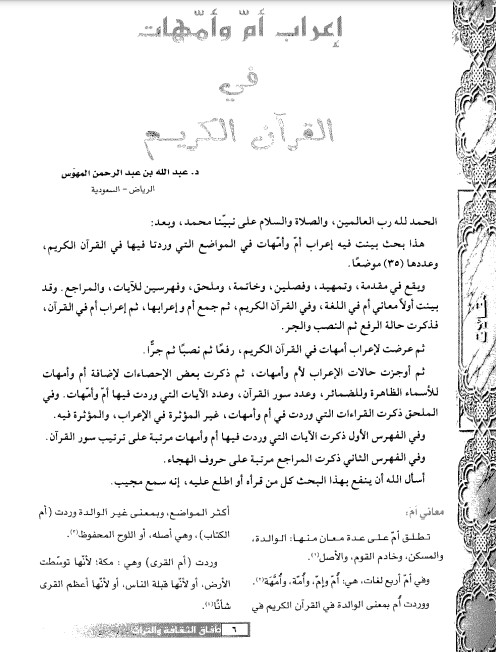 إعراب أمّ وأمّهات
في
القرآن الكريم
د. عبد الله بن عبد الرحمن المهوّس
الرياض - السعودية
الحمد لله رب العالمين، والصلاة والسلام على نبيّنا محمد، وبعد:
هذا بحث بينت فيه إعراب أمّ وأمّهات في المواضع التي وردتا فيها في القرآن الكريم،
وعددها (٣٥) موضعًا.
ويقع في مقدمة، وتمهيد، وفصلين، وخاتمة، وملحق، وفهرسين للآيات، والمراجع. وقد
بينت أولاً معاني أم في اللغة، وفي القرآن الكريم، ثم جمع أم وإعرابها، ثم إعراب أم في القرآن،
فذكرت حالة الرفع ثم النصب والجر.
ثم عرضت لإعراب أمهات في القرآن الكريم، رفعًا ثم نصبًا ثم جرًّا.
ثم أوجزت حالات الإعراب لأم وأمهات، ثم ذكرت بعض الإحصاءات لإضافة أم وأمهات
للأسماء الظاهرة وللضمائر، وعدد سور القرآن، وعدد الآيات التي وردت فيها أمّ وأمّهات. وفي
الملحق ذكرت القراءات التي وردت في أم وأمهات، غير المؤثرة في الإعراب، والمؤثرة فيه.
وفي الفهرس الأول ذكرت الآيات التي وردت فيها أم وأمهات مرتبة على ترتيب سور القرآن.
وفي الفهرس الثاني ذكرت المراجع مرتبة على حروف الهجاء.
أسأل الله أن ينفع بهذا البحث كل من قرأه أو اطلع عليه، إنه سمع مجيب.
معاني أم:
تطلق أمّ على عدة معان منها: الوالدة،
والمسكن، وخادم القوم، والأصل(١).
وفي أمّ أربع لغات، هي: أُمّ وإمّ، وأُمّة، وأُمَّهَة(٢).
ووردت أُم بمعنى الوالدة في القرآن الكريم في
أكثر المواضع، وبمعنى غير الوالدة وردت (أم
الكتاب)، وهي أصله، أو اللوح المحفوظ(٣).
وردت (أم القرى) وهي: مكة؛ لأنّها توسّطت
الأرض، أو لأنّها قبلة الناس، أو لأنّها أعظم القرى
شأنًا(٤).
٦ آفاق الثقافة والتراث
مقالات